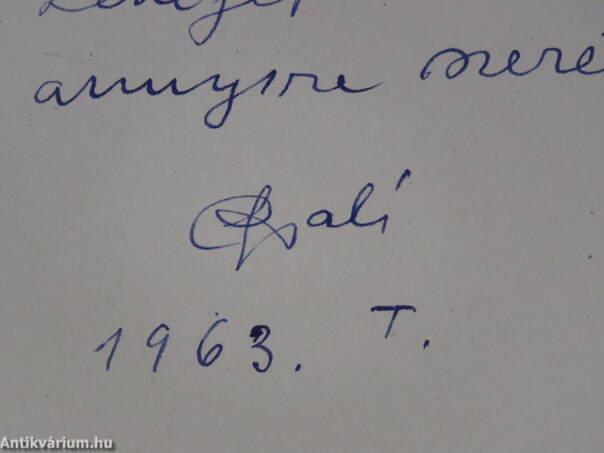 annyira szeré
Bali
1963. T.
Antikvárium.hu